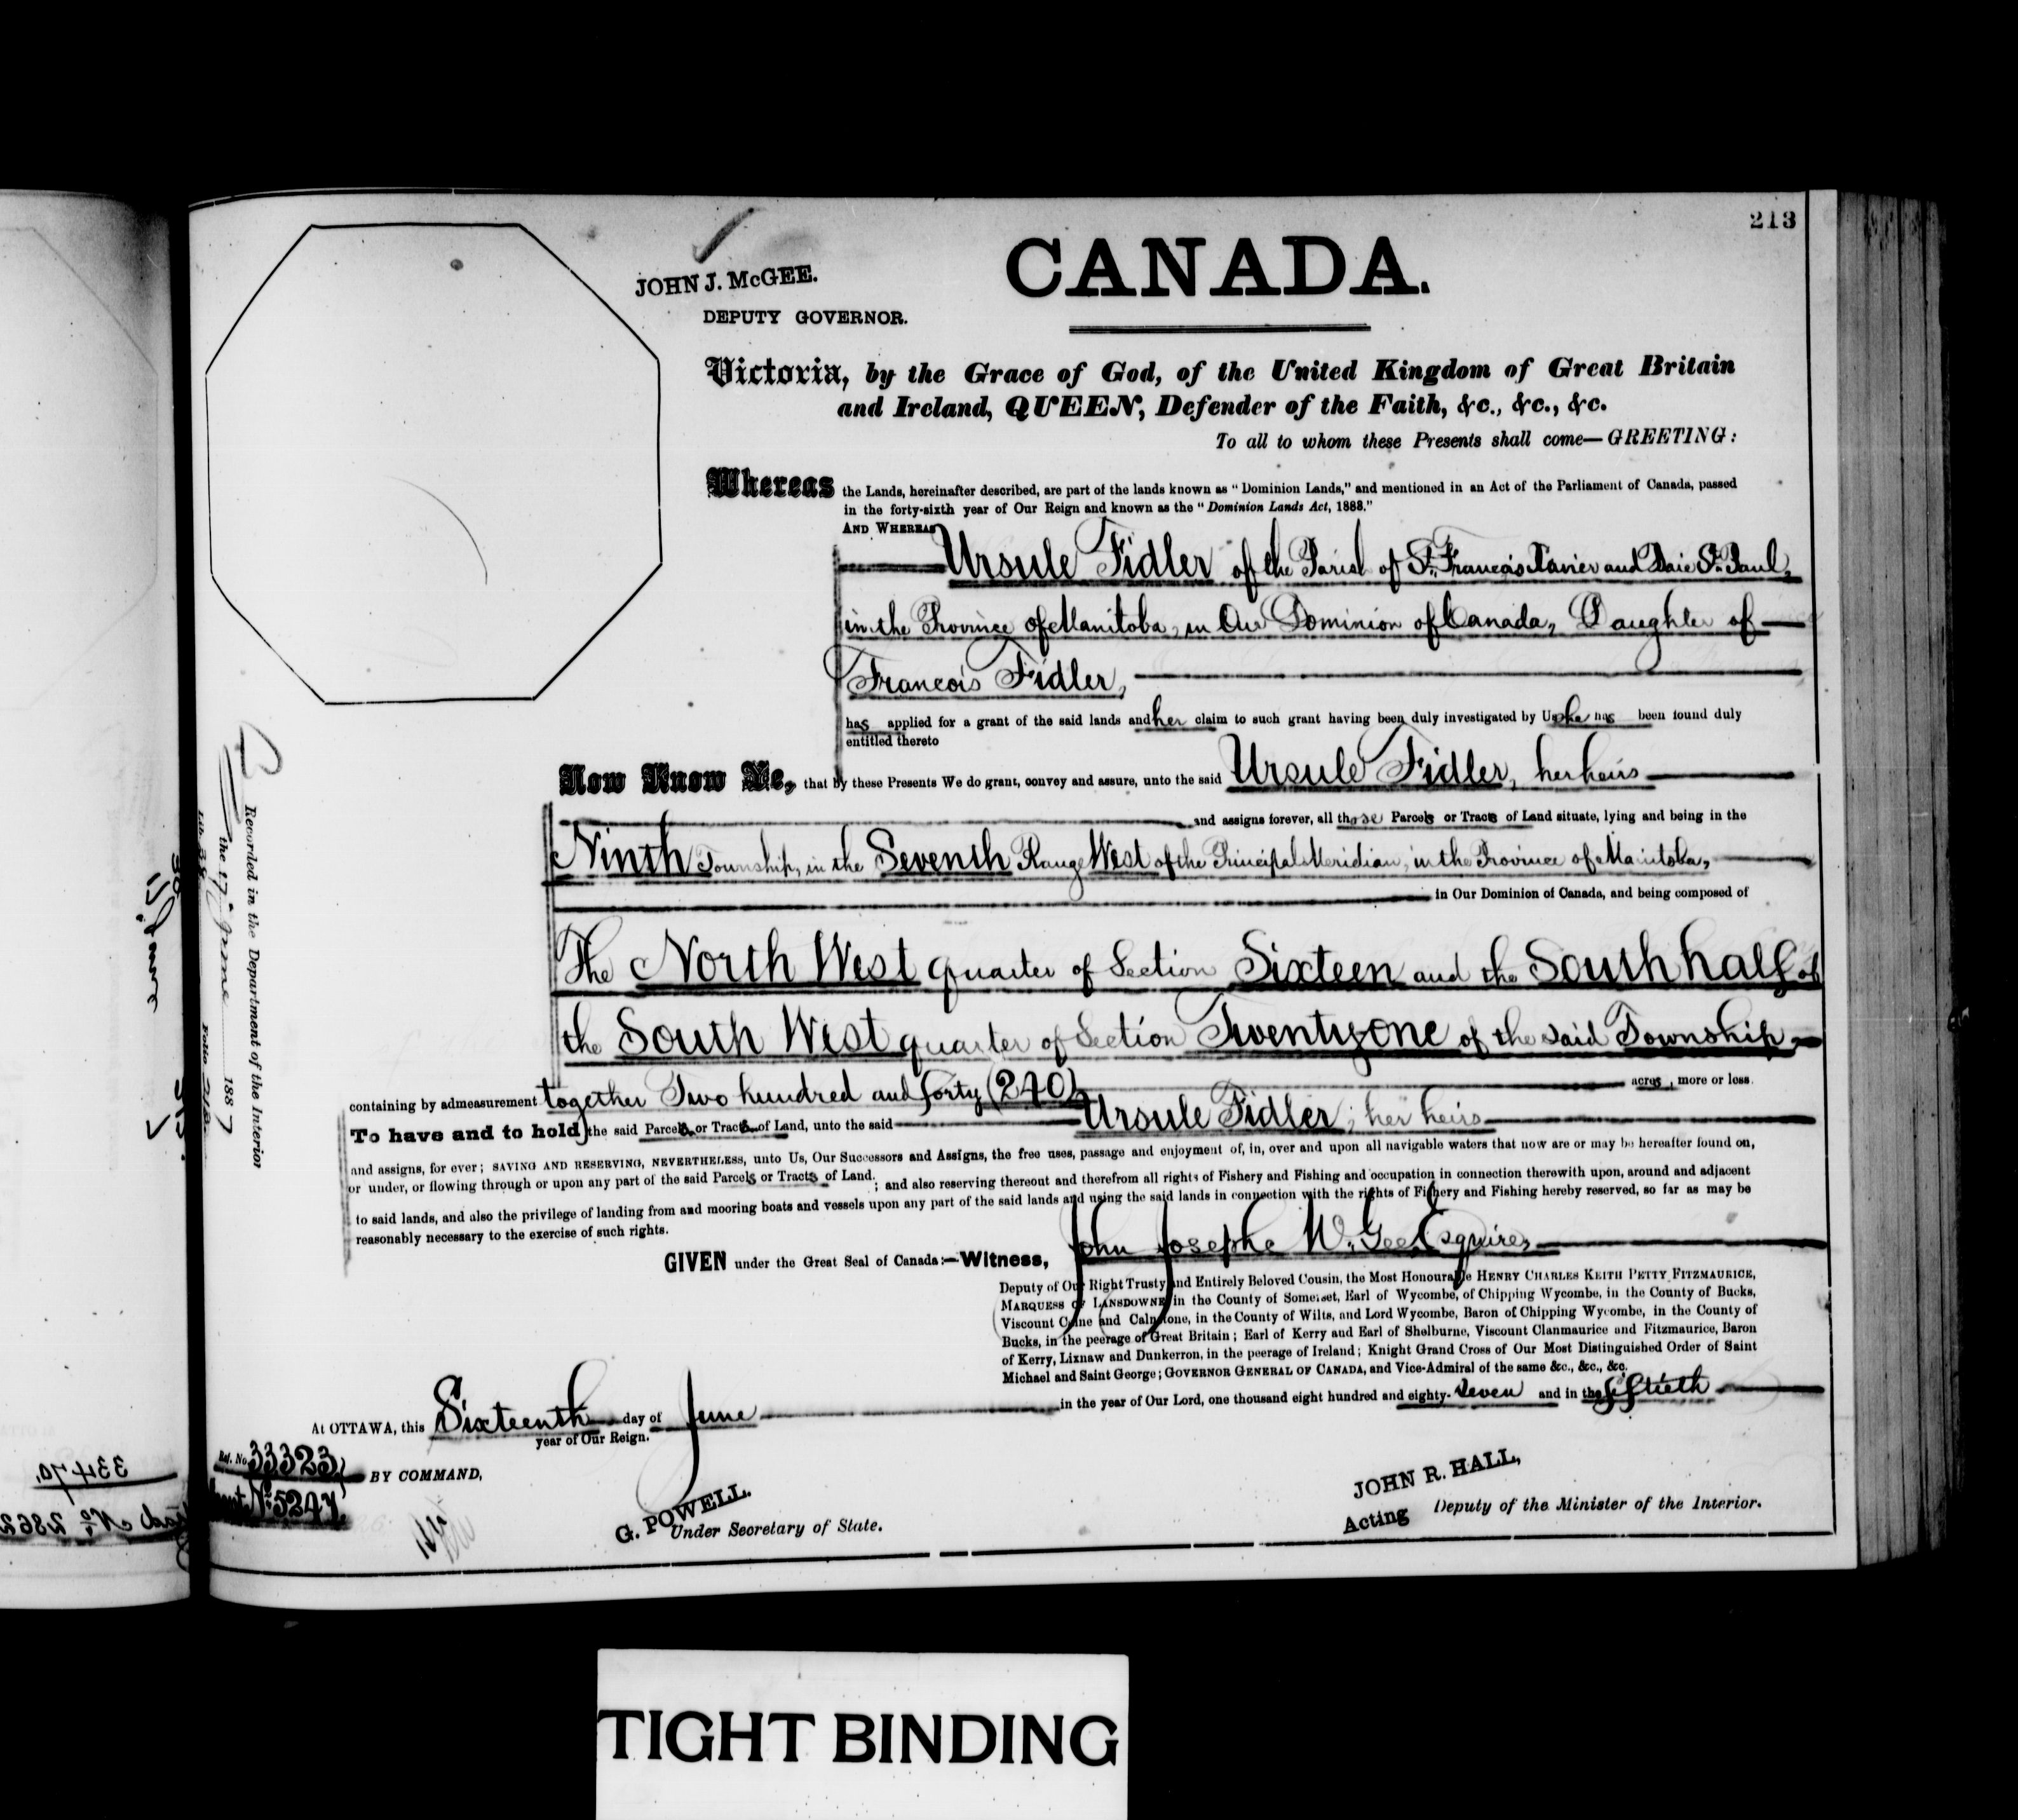 213
CANADA.
JOHN J. McGEE.
DEPUTY GOVERNOR.
Victoria, by the Grace of God, of the United Kingdom of Great Britain
and Ireland, QUEEN, Defender of the Faith, &c., &c., &c.
To all to whom these Presents shall come—GREETING:
Whereas the Lands, hereinafter described, are part of the lands known as "Dominion Lands," and mentioned in an Act of the Parliament of Canada, passed
in the forty-sixth year of Our Reign and known as the "Dominion Lands Act, 1883."
AND WHEREAS
Ursule Fidler of the Parish of St. Francois Xavier and Baie St. Paul,
in the Province of Manitoba, in Our Dominion of Canada, Daughter of
Francois Fidler,
has applied for a grant of the said lands and her claim to such grant having been duly investigated by Us she has been found duly
entitled thereto
Now Know Ye, that by these Presents We do grant, convey and assure, unto the said Ursule Fidler, her heirs
and assigns forever, all those Parcels or Tracts of Land situate, lying and being in the
Ninth Township, in the Seventh Range West of the Principal Meridian, in the Province of Manitoba,
in Our Dominion of Canada, and being composed of
The North West quarter of Section Sixteen and the South half of
the South West quarter of Section Twenty one of the said Township
containing by admeasurement together Two hundred and forty (240) acres, more or less.
To have and to hold the said Parcels or Tracts of Land, unto the said Ursule Fidler, her heirs
and assigns, for ever; SAVING AND RESERVING, NEVERTHELESS, unto Us, Our Successors and Assigns, the free uses, passage and enjoyment of, in, over and upon all navigable waters that now are or may be hereafter found on,
or under, or flowing through or upon any part of the said Parcels or Tracts of Land; and also reserving thereout and therefrom all rights of Fishery and Fishing and occupation in connection therewith upon, around and adjacent
to said lands, and also the privilege of landing from and mooring boats and vessels upon any part of the said lands and using the said lands in connection with the rights of Fishery and Fishing hereby reserved, so far as may be
reasonably necessary to the exercise of such rights.
GIVEN under the Great Seal of Canada:—Witness, John Josephe McGee Esquire,
Deputy of Our Right Trusty and Entirely Beloved Cousin, the Most Honourable HENRY CHARLES KEITH PETTY FITZMAURICE,
MARQUESS OF LANSDOWNE in the County of Somerset, Earl of Wycombe, of Chipping Wycombe, in the County of Bucks,
Viscount Calne and Calnstone, in the County of Wilts, and Lord Wycombe, Baron of Chipping Wycombe, in the County of
Bucks, in the peerage of Great Britain; Earl of Kerry and Earl of Shelburne, Viscount Clanmaurice and Fitzmaurice, Baron
of Kerry, Lixnaw and Dunkerron, in the peerage of Ireland; Knight Grand Cross of Our Most Distinguished Order of Saint
Michael and Saint George; GOVERNOR GENERAL OF CANADA, and Vice-Admiral of the same &c., &c., &c.
At OTTAWA, this Sixteenth day of June in the year of Our Lord, one thousand eight hundred and eighty-seven and in the fiftieth
year of Our Reign.
Ref. No. 33323
BY COMMAND,
No. 5247
G. POWELL.
Under Secretary of State.
JOHN R. HALL,
Acting Deputy of the Minister of the Interior.
Recorded in the Department of the Interior
the 17 June 1887
Folio 213
TIGHT BINDING